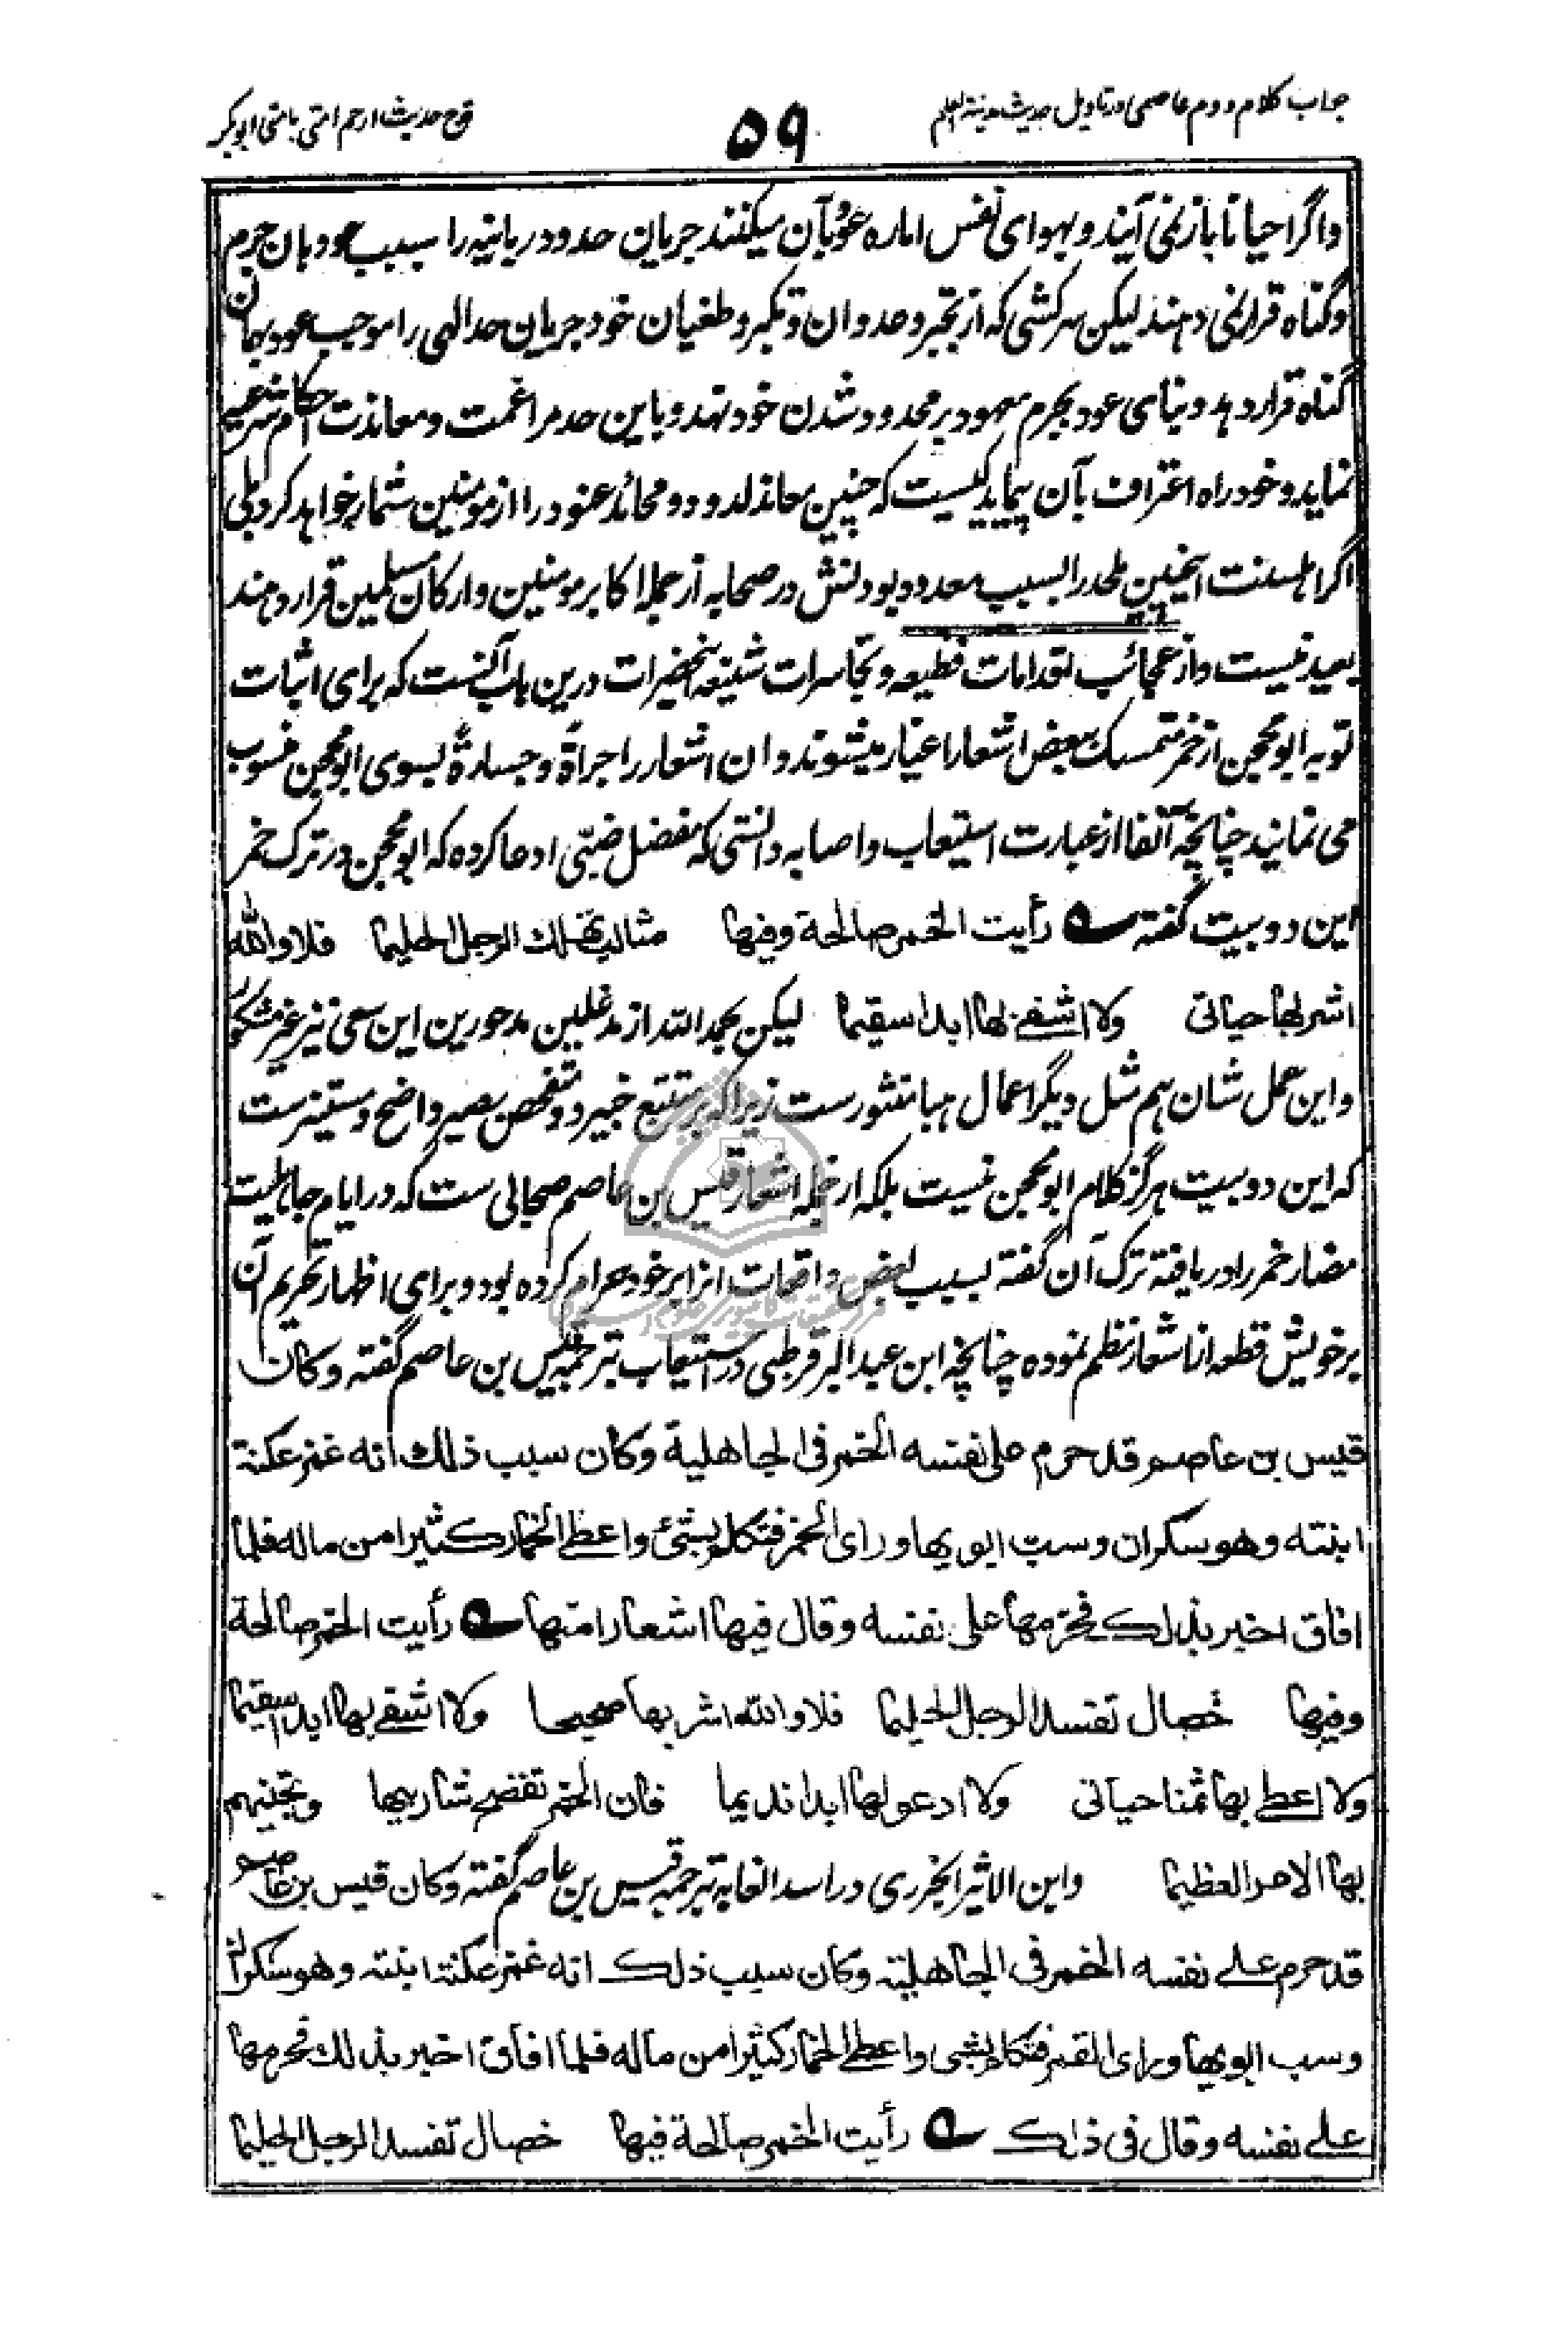 جواب کلام دوم عاصمی در تاویل حدیث مدینة العلم
۵۹
قدح حدیث ارحم امتی بامتی ابوبکر
واگر احیانا باز نمی آیند و بهوای نفس اماره عود بآن میکنند جریان حدود ربانیه را سبب عود بان جرم
وگناه قرار نمی دهند لیکن سرکشی که از تجبر وعدوان وتکبر وطغیان خود جریان حد الهی را موجب عود بهمان
گناه قرار دهد وبنای عود بجرم معهود بر محدود شدن خود نهد وباین حد مراغمت ومعاندت احکام شرعیه
نماید وخود راه اعتراف بآن پیماید کیست که چنین معاند لدود ومحائد عنود را از مومنین شمار خواهد کرد بلی
اگر اهلسنت اینچنین ملحد را بسبب معدود بودنش در صحابه از جمله اکابر مومنین وارکان مسلمین قرار دهند
بعید نیست واز عجائب اقدامات فظیعه وتجاسرات شنیعه اینحضرات درین باب آنست که برای اثبات
توبه ابو محجن از خمر متمسک ببعض اشعار اغیار میشوند وان اشعار را جراةً وجسارةً بسوی ابو محجن منسوب
می نمایند چنانچه آنفا از عبارت استیعاب واصابه دانستی که مفضل ضبّی ادعا کرده که ابو محجن در ترک خمر
این دو بیت گفته رأیت الخمر صالحة وفیها مثالب تهلك الرجل الحلیما فلا والله
اشربها حیاتی ولا اشفی بها ابدا سقیما لیکن بحمد الله از مدغلین مدحورین این سعی نیز غیر مشکور
واین عمل شان هم مثل دیگر اعمال هباء منثورست زیرا که بر متتبع خبیر و متفحص بصیر واضح ومستنیرست
که این دو بیت هرگز کلام ابو محجن نیست بلکه از جمله اشعار قیس بن عاصم صحابی ست که در ایام جاهلیت
مضار خمر را دریافته ترک آن گفته بسبب بعض واقعات انرا بر خود حرام کرده بود وبرای اظهار تحریم آن
بر خویش قطعه از اشعار نظم نموده چنانچه ابن عبد البر قرطبی در استیعاب بترجمه قیس بن عاصم گفته وکان
قیس بن عاصم قد حرم علی نفسه الخمر فی الجاهلیة وکان سبب ذلك انه غمز عکنة
ابنته وهو سکران وسب ابویها ورای الخمر فتکلم بشئ واعطی الخمار کثیرا من ماله فلما
افاق اخبر بذلك فحرّمها علی نفسه وقال فیها اشعارا منها رأیت الخمر صالحة
وفیها خصال تفسد الرجل الحلیما فلا والله اشربها صحیحا ولا اشفی بها ابدا سقیما
ولا اعطی بها ثمنا حیاتی ولا ادعو لها ابدا ندیما فان الخمر تفضح شاربیها وتجنیهم
بها الامر العظیما وابن الاثیر الجزری در اسد الغابه بترجمه قیس بن عاصم گفته وکان قیس بن عاصم
قد حرم علی نفسه الخمر فی الجاهلیة وکان سبب ذلك انه غمز عکنة ابنته وهو سکران
وسب ابویها ورای القمر فتکلم بشی واعطی الخمار کثیرا من ماله فلما افاق اخبر بذلك فحرمها
علی نفسه وقال فی ذلك رأیت الخمر صالحة فیها خصال تفسد الرجل الحلیما